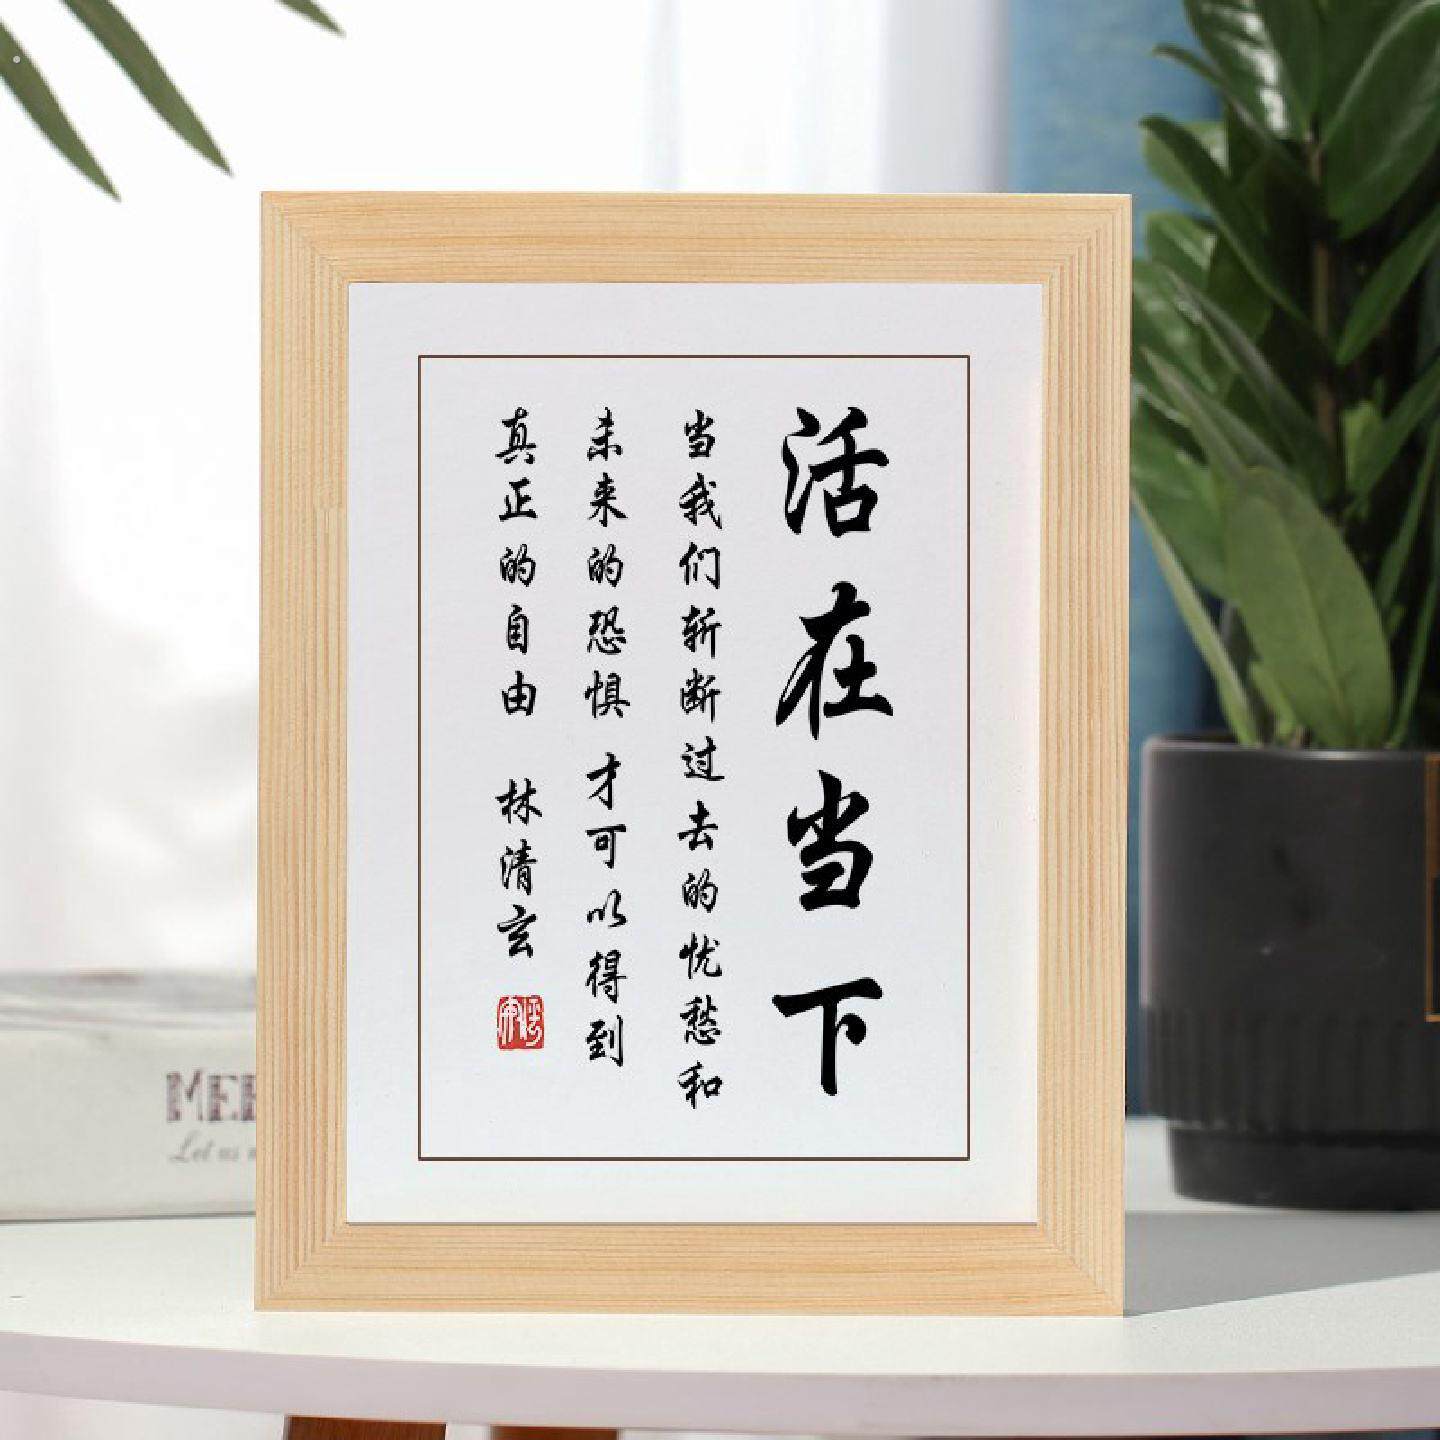 活在当下
当我们斩断过去的忧愁和
未来的恐惧 才可以得到
真正的自由 林清玄
MER
Let us